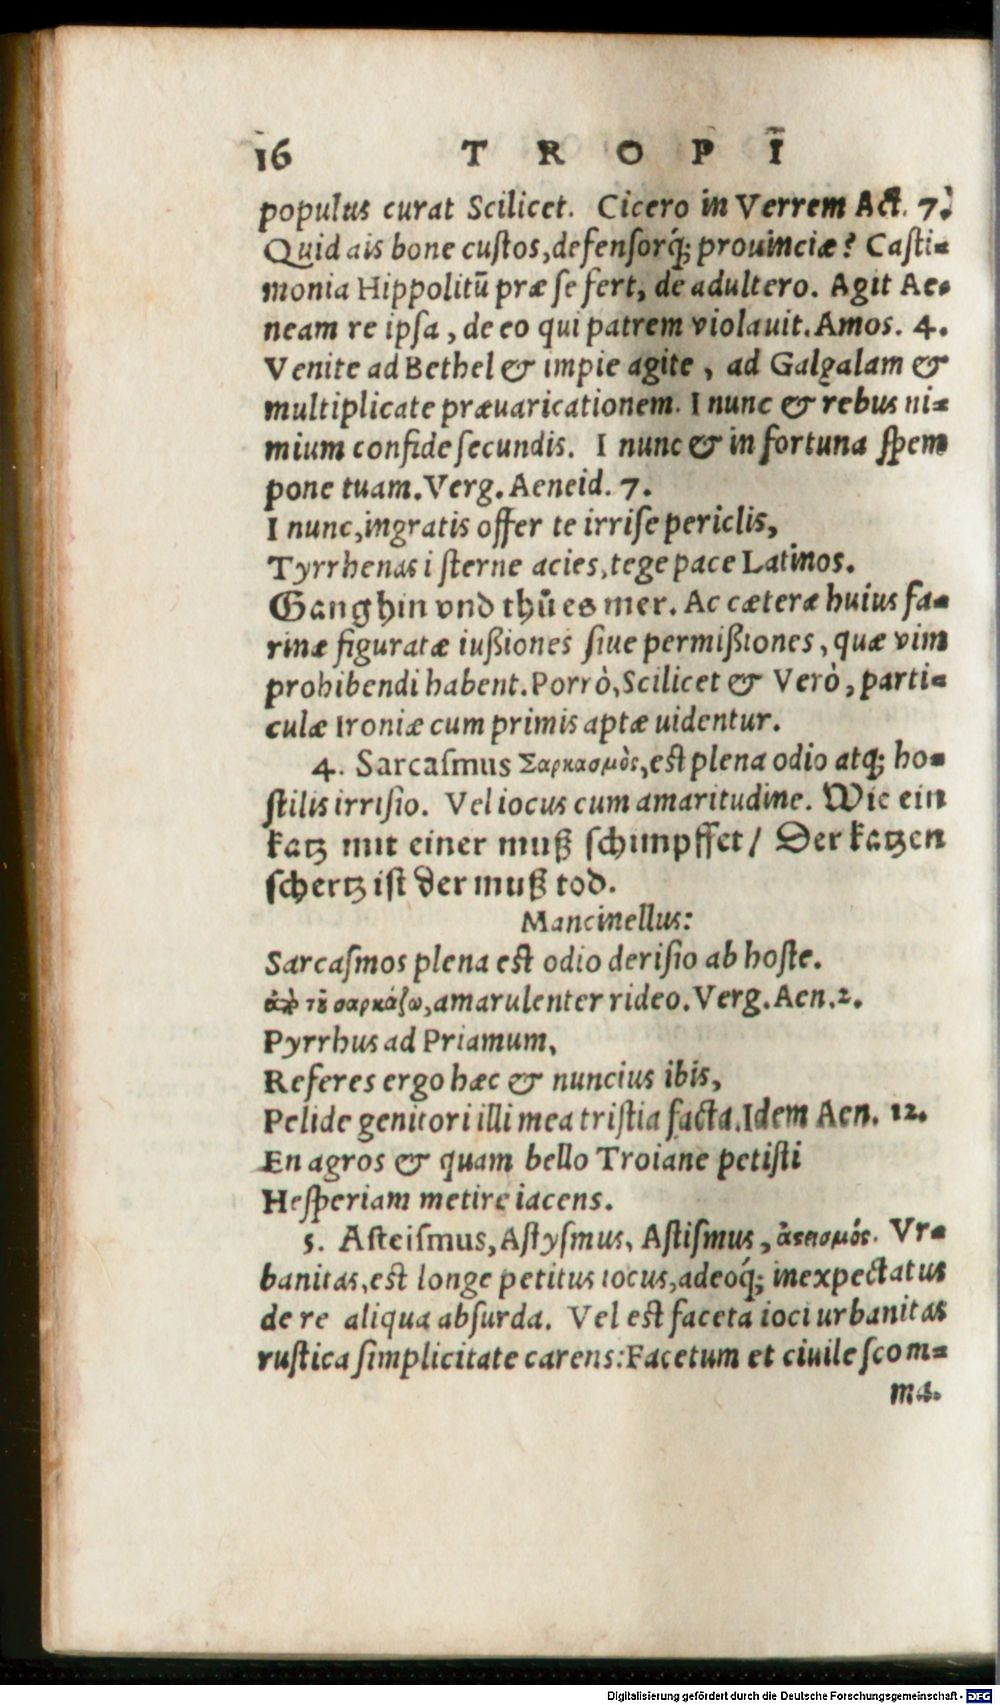 16 TROPI
populus curat Scilicet. Cicero in Verrem Act. 7.
Quid ais bone cuſtos, defenſorq́; prouinciæ? Caſti-
monia Hippolitū præ ſe fert, de adultero. Agit Ae-
neam re ipſa, de eo qui patrem violauit. Amos. 4.
Venite ad Bethel & impie agite, ad Galgalam &
multiplicate præuaricationem. I nunc & rebus ni-
mium confide ſecundis. I nunc & in fortuna ſpem
pone tuam. Verg. Aeneid. 7.
I nunc, ingratis offer te irriſe periclis,
Tyrrhenas i ſterne acies, tege pace Latinos.
Gang hin vnd thů es mer. Ac cæteræ huius fa-
rinæ figuratæ iußiones ſiue permißiones, quæ vim
prohibendi habent. Porrò, Scilicet & Verò, parti-
culæ Ironiæ cum primis aptæ uidentur.
4. Sarcaſmus Σαρκασμὸς, est plena odio atq; ho-
ſtilis irriſio. Vel iocus cum amaritudine. Wie ein
katz mit einer muß ſchimpffet/ Der katzen
ſchertz iſt der muß tod.
Mancinellus:
Sarcaſmos plena est odio deriſio ab hoſte.
ἀπὸ τȣ͂ σαρκάζω, amarulenter rideo. Verg. Aen. 2.
Pyrrhus ad Priamum,
Referes ergo hæc & nuncius ibis,
Pelide genitori illi mea triſtia facta. Idem Aen. 12.
En agros & quam bello Troiane petiſti
Heſperiam metire iacens.
5. Aſteiſmus, Aſtyſmus, Aſtiſmus, ἀϛεισμός. Vr-
banitas, est longe petitus iocus, adeoq́; inexpectatus
de re aliqua abſurda. Vel est faceta ioci urbanitas
ruſtica ſimplicitate carens: Facetum et ciuile ſcom-
ma.
Digitalisierung gefördert durch die Deutsche Forschungsgemeinschaft - DFG